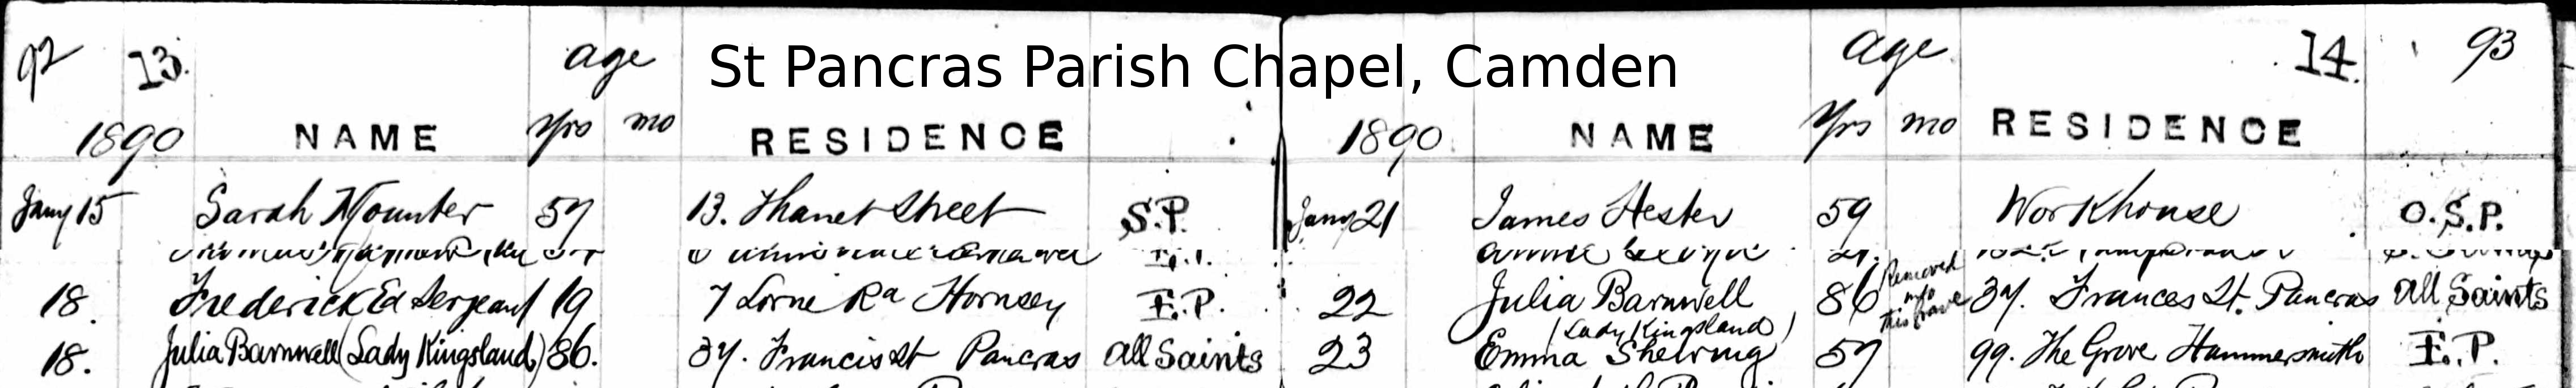 St Pancras Parish Chapel, Camden
92 13. age
1890 NAME yrs mo RESIDENCE
Jany 15 Sarah Mounter 57 13. Thanet Street S.P.
18. Frederick Ed Sergeant 19 7 Lorne Rd Hornsey E.P.
18. Julia Barnwell (Lady Kingsland) 86. 37. Francis St Pancras All Saints
age 14. 93
1890 NAME yrs mo RESIDENCE
Jany 21 James Hester 59 Workhouse O.S.P.
22 Julia Barnwell 86 Removed into this Grave 37. Frances St. Pancras All Saints
(Lady Kingsland)
23 Emma Shewring 57 99. The Grove Hammersmith E.P.